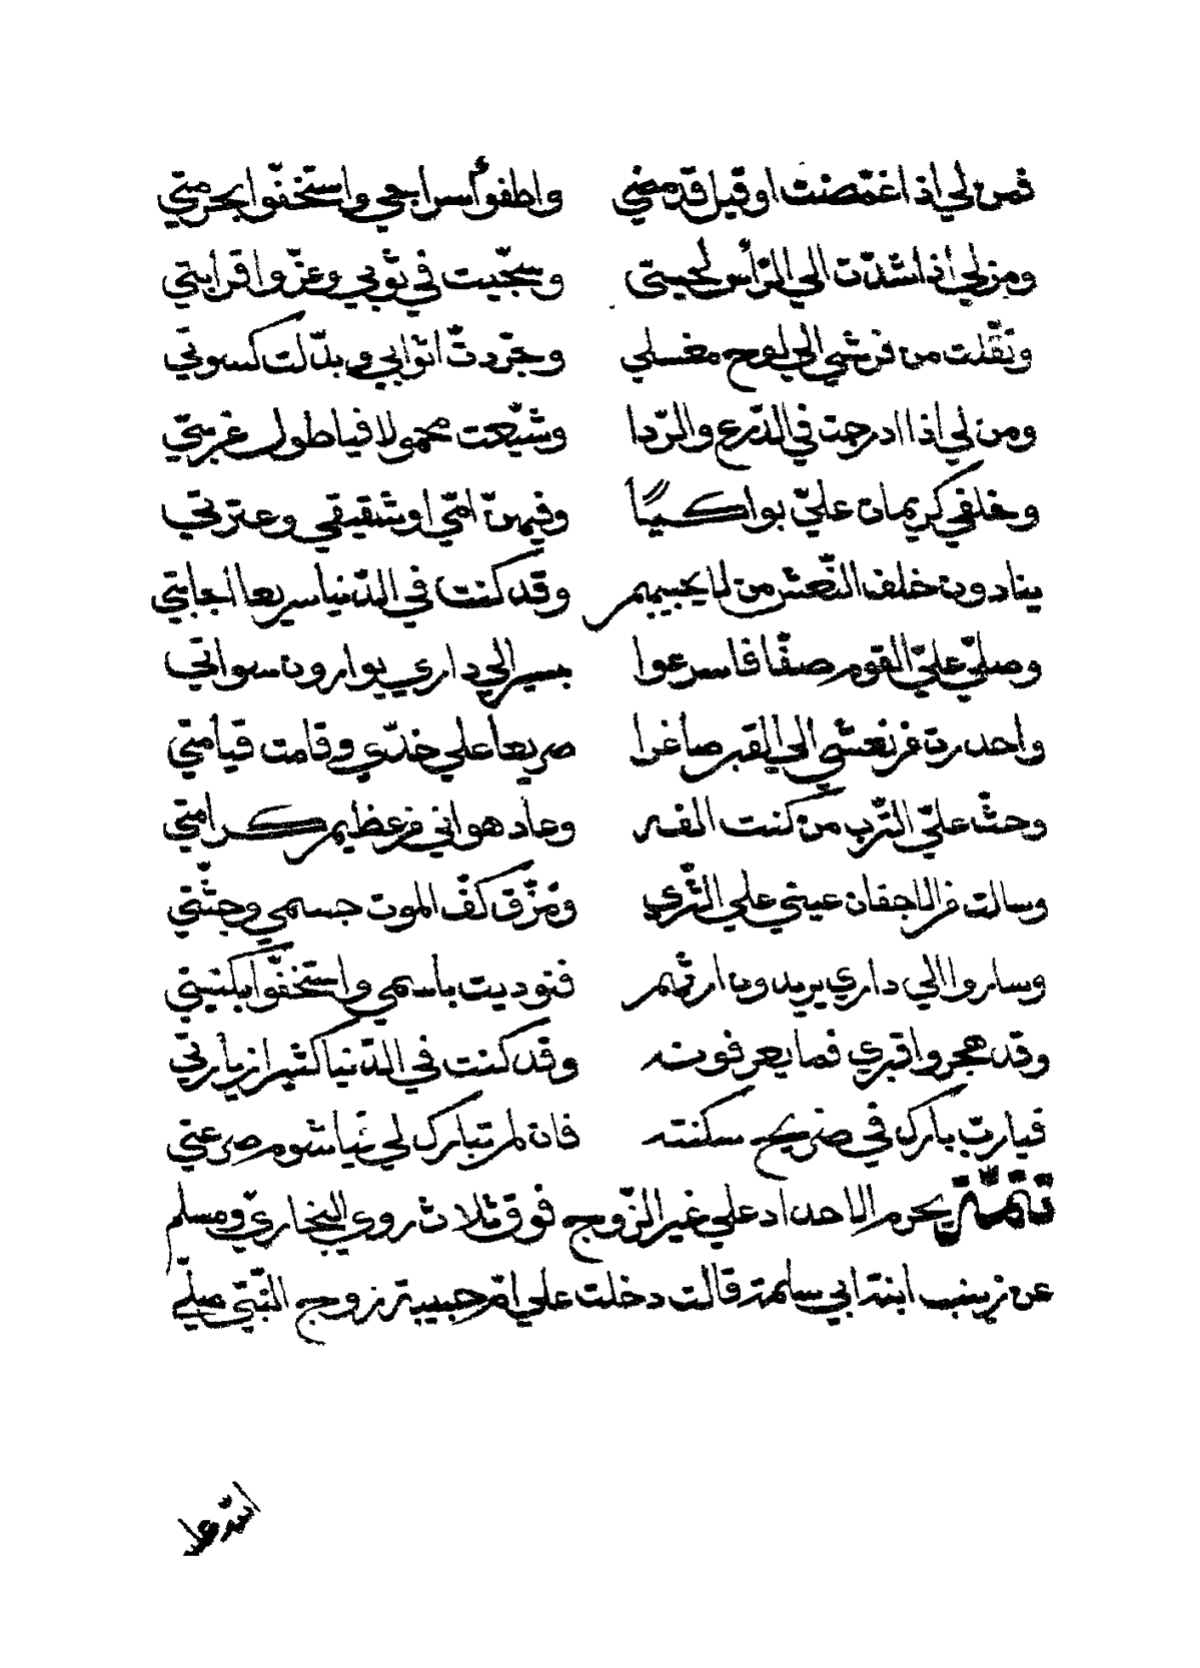 فمن لي اذا غمّضت او قيل قد مضي واطفوٴا سراجي واستخفّوا بحرمتي
ومن لي اذا شدّت الي الرّأس لحيتي وسجّيت في ثوبي وعزّوا قرابتي
ونقّلت من فرشي الي لوح مغسلي وجرّدت اثوابي وبدّلت كسوتي
ومن لي اذا ادرجت في الدّرع والرّدا وشيّعت محمولا فيا طول غربتي
وخلفي كريمان عليّ بواكيًا وفيهنّ امّي او شقيقي وعترتي
ينادون خلف النّعش من لا يجيبهم وقد كنت في الدّنيا سريعا اجابتي
وصلّي عليّ القوم صفّا فاسرعوا بسير الي داري يوارون سواتي
واحدرت من نعشي الي القبر صاغرا صريعا علي خدّي وقامت قيامتي
وحثّ عليّ التّرب من كنت الفه وعاد هواني من عظيم كرامتي
وسالت من الاجفان عيني علي الثّري ومزّق كفّ الموت جسمي وجثّتي
وساروا الي داري يريدون ارثهم فنوديت باسمي واستخفّوا بكنيتي
وقد هجروا قبري فما يعرفونه وقد كنت في الدّنيا كثيرا زيارتي
فيا ربّ بارك في ضريح سكنته فان لم تبارك لي فيا شوم صرعتي
تتمّة يحرم الاحداد علي غير الزّوج فوق ثلاث روي البخاري ومسلم
عن زينب ابنة ابي سلمة قالت دخلت علي امّ حبيبة زوج النّبيّ صلّي